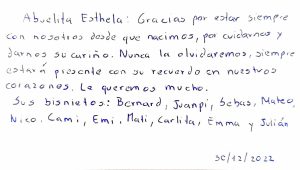 Abuelita Esthela: Gracias por estar siempre
con nosotros desde que nacimos, por cuidarnos y
darnos su cariño. Nunca la olvidaremos, siempre
estará presente con su recuerdo en nuestros
corazones. La queremos mucho.
Sus bisnietos: Bernard, Juanpi, Sebas, Mateo,
Nico, Cami, Emi, Mati, Carlita, Emma y Julián
30/12/2022